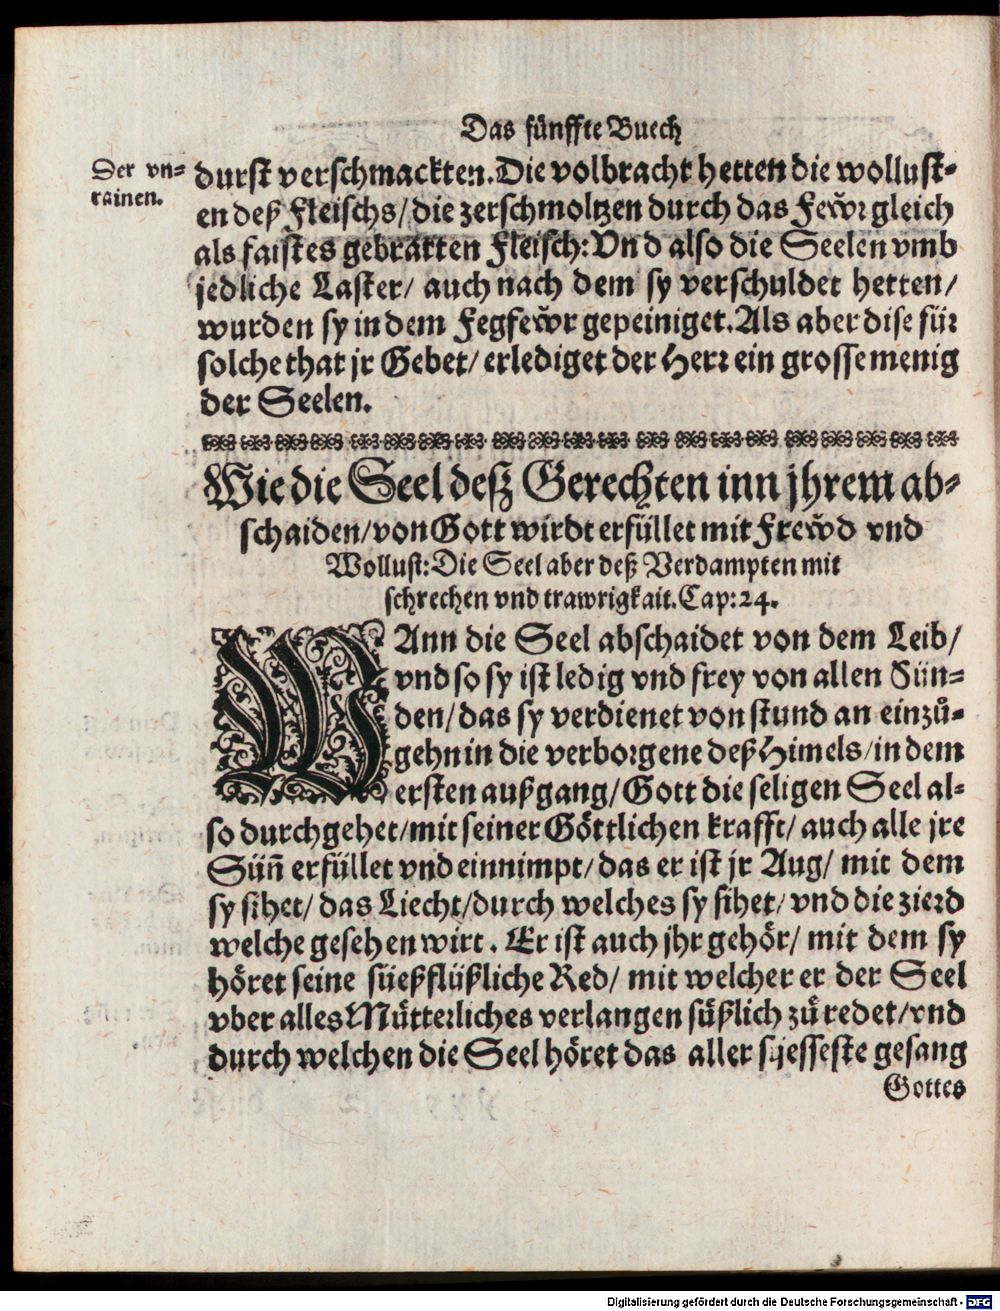 Das fünffte Buech
Der vn-
rainen.
durst verschmackten. Die volbracht hetten die wollust-
en deß Fleischs/ die zerschmoltzen durch das Fewr gleich
als faistes gebratten Fleisch: Vnd also die Seelen vmb
jedliche Laster/ auch nach dem sy verschuldet hetten/
wurden sy in dem Fegfewr gepeiniget. Als aber dise für
solche that jr Gebet/ erlediget der Herr ein grosse menig
der Seelen.
Wie die Seel desz Gerechten inn jhrem ab-
schaiden/ von Gott wirdt erfüllet mit Frewd vnd
Wollust: Die Seel aber deß Verdampten mit
schrechen vnd trawrigkait. Cap: 24.
WAnn die Seel abschaidet von dem Leib/
vnd so sy ist ledig vnd frey von allen Sün-
den/ das sy verdienet von stund an einzů-
gehn in die verborgene deß Himels/ in dem
ersten außgang/ Gott die seligen Seel al-
so durchgehet/ mit seiner Göttlichen krafft/ auch alle jre
Siñ erfüllet vnd einnimpt/ das er ist jr Aug/ mit dem
sy sihet/ das Liecht/ durch welches sy sihet/ vnd die zierd
welche gesehen wirt. Er ist auch jhr gehör/ mit dem sy
höret seine süeßflüßliche Red/ mit welcher er der Seel
vber alles Mütterliches verlangen süßlich zů redet/ vnd
durch welchen die Seel höret das aller süesseste gesang
Gottes
Digitalisierung gefördert durch die Deutsche Forschungsgemeinschaft - DFG